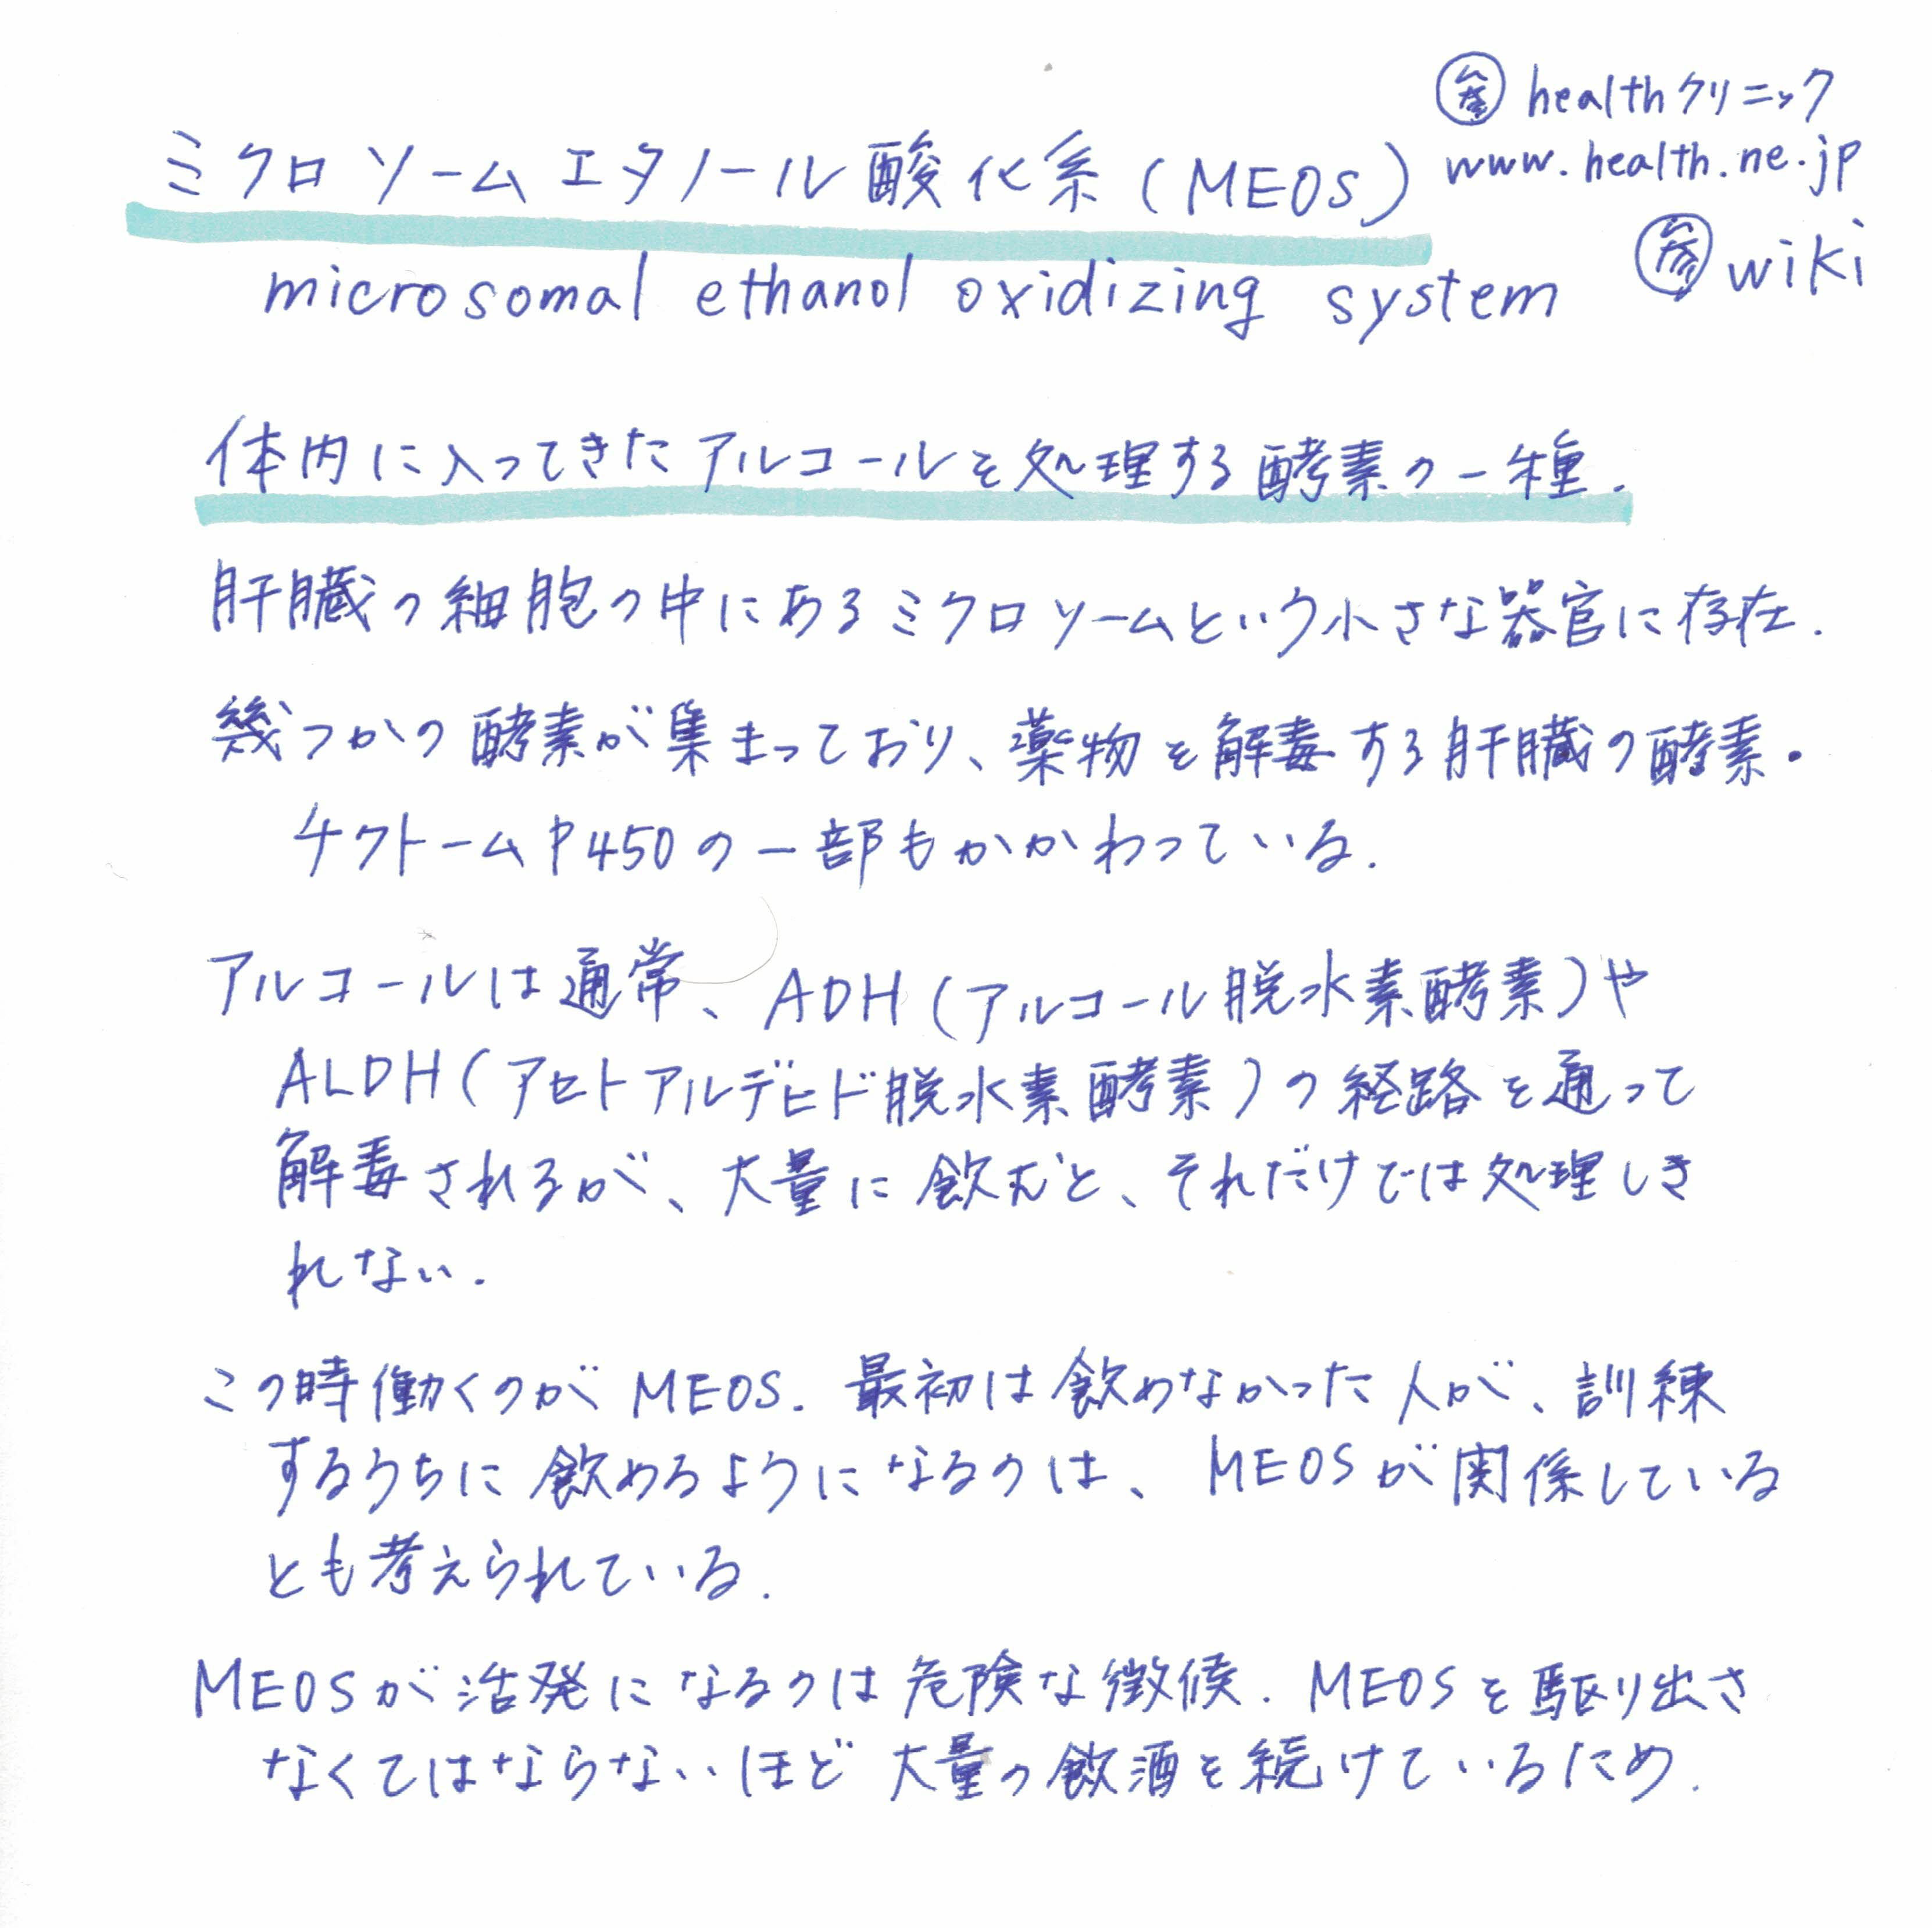 ミクロソームエタノール酸化系(MEOS)
㊂参 healthクリニック
www.health.ne.jp
microsomal ethanol oxidizing system
参 wiki
体内に入ってきたアルコールを処理する酵素の一種.
肝臓の細胞の中にあるミクロソームという小さな器官に存在.
幾つかの酵素が集まっており、薬物を解毒する肝臓の酵素・
チクトームP450の一部もかかわっている.
アルコールは通常、ADH(アルコール脱水素酵素)や
ALDH(アセトアルデヒド脱水素酵素)の経路を通って
解毒されるが、大量に飲むと、それだけでは処理しき
れない.
この時働くのがMEOS. 最初は飲めなかった人が、訓練
するうちに飲めるようになるのは、MEOSが関係している
とも考えられている.
MEOSが活発になるのは危険な徴候. MEOSを駆り出さ
なくてはならないほど大量の飲酒を続けているため.